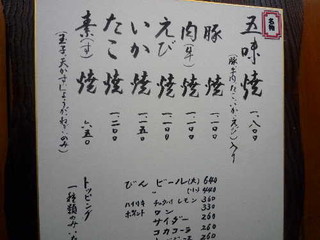 名物
五味焼 一、八〇〇
(豚、牛肉、たこ、いか、えび)入り
豚焼 一、一〇〇
肉(牛)焼 一、一〇〇
えび焼 一、一〇〇
いか焼 一、一五〇
たこ焼 一、二〇〇
素(す)焼 六五〇
(玉子、天かす、しょうが、ねぎ、のみ)
トッピング
一種類のみ
びんビール(大) 640
(小) 440
ハイリキ チューハイ レモン 360
330
サイダー 260
コカコーラ 260
260